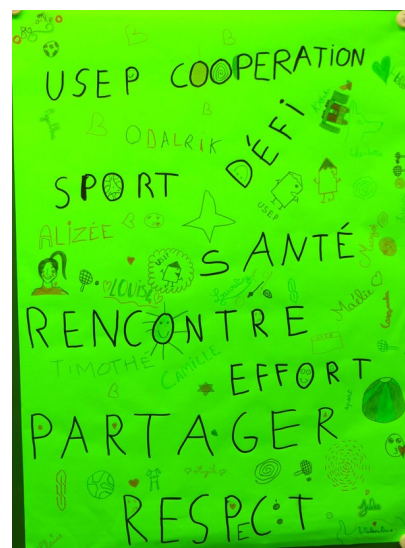 USEP COOPERATION
ODALRIK
DÉFI
SPORT
USEP
ALIZÉE
SANTÉ
USEP
LOUIS
Maélie
RENCONTRE
TIMOTHE
CAMILLE
EFFORT
PARTAGER
RESPECT